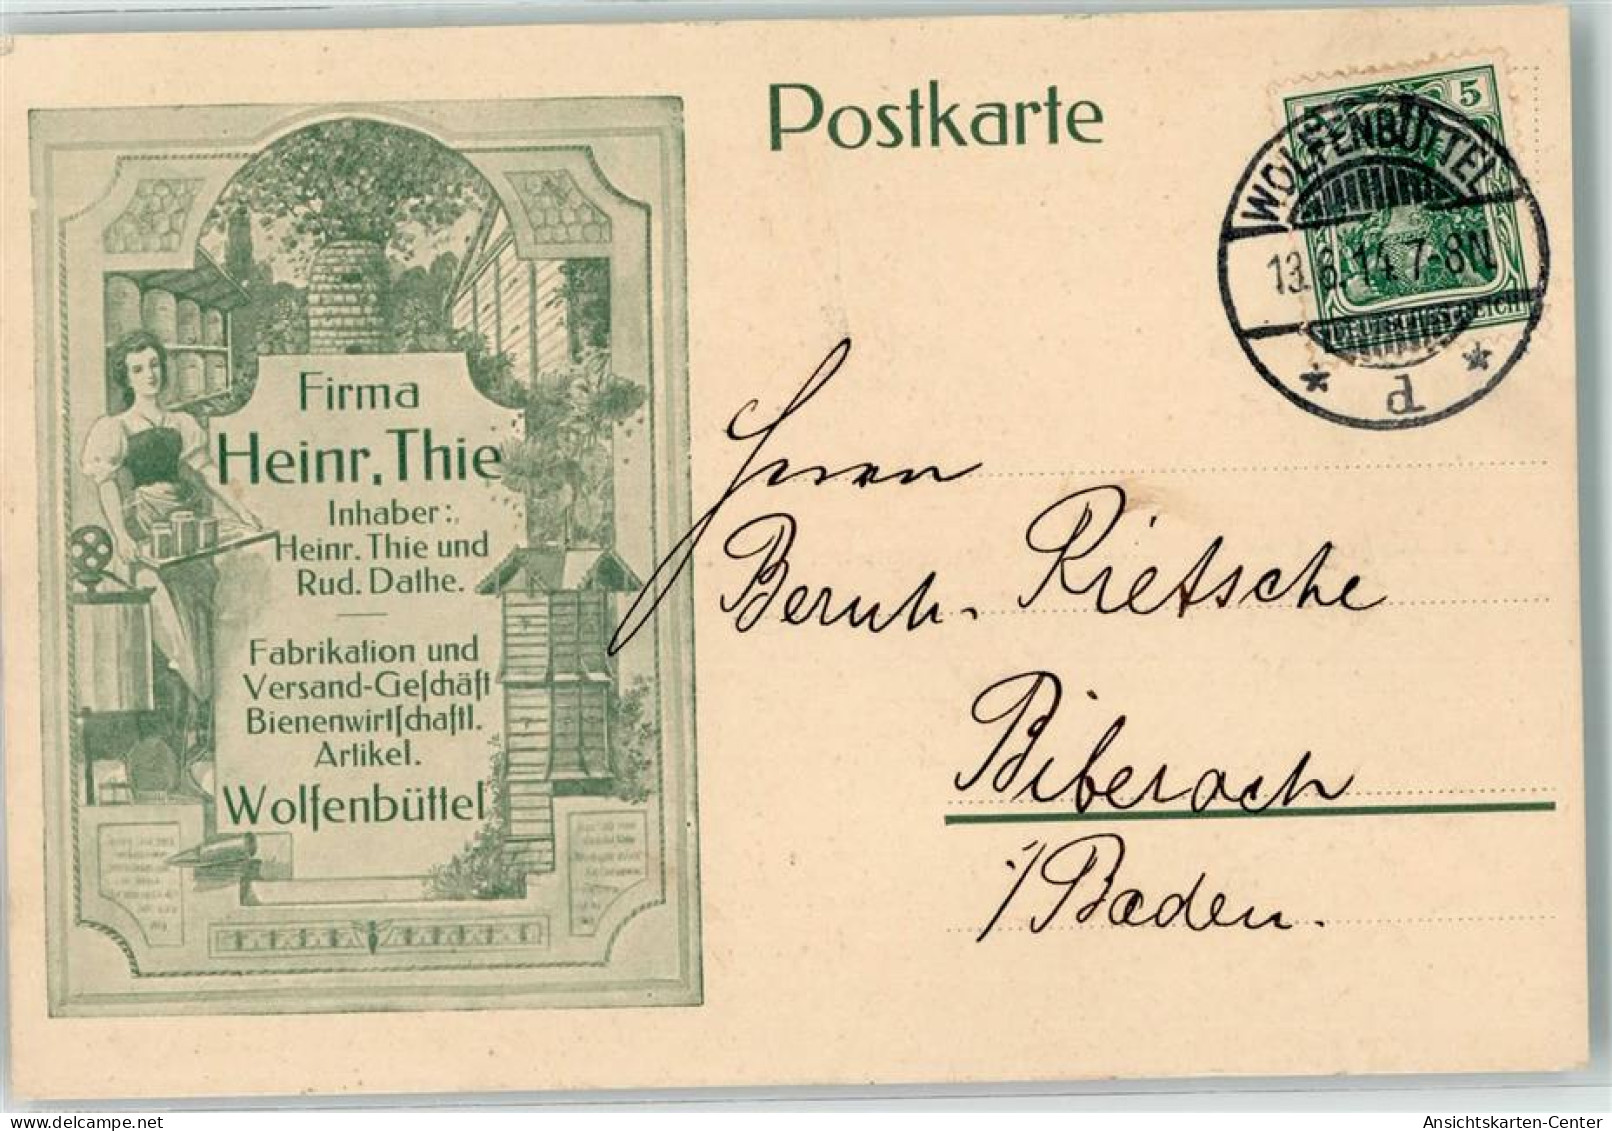 Postkarte
5
WOLFENBÜTTEL
13.6.14.7-8N
DEUTSCHES REICH
* d *
Firma
Heinr. Thie
Inhaber:
Heinr. Thie und
Rud. Dathe.
Fabrikation und
Versand-Geſchäft
Bienenwirtſchaftl.
Artikel.
Wolfenbüttel
Herrn
Bernh. Rietsche
Biberach
i/Baden.
Ansichtskarten-Center